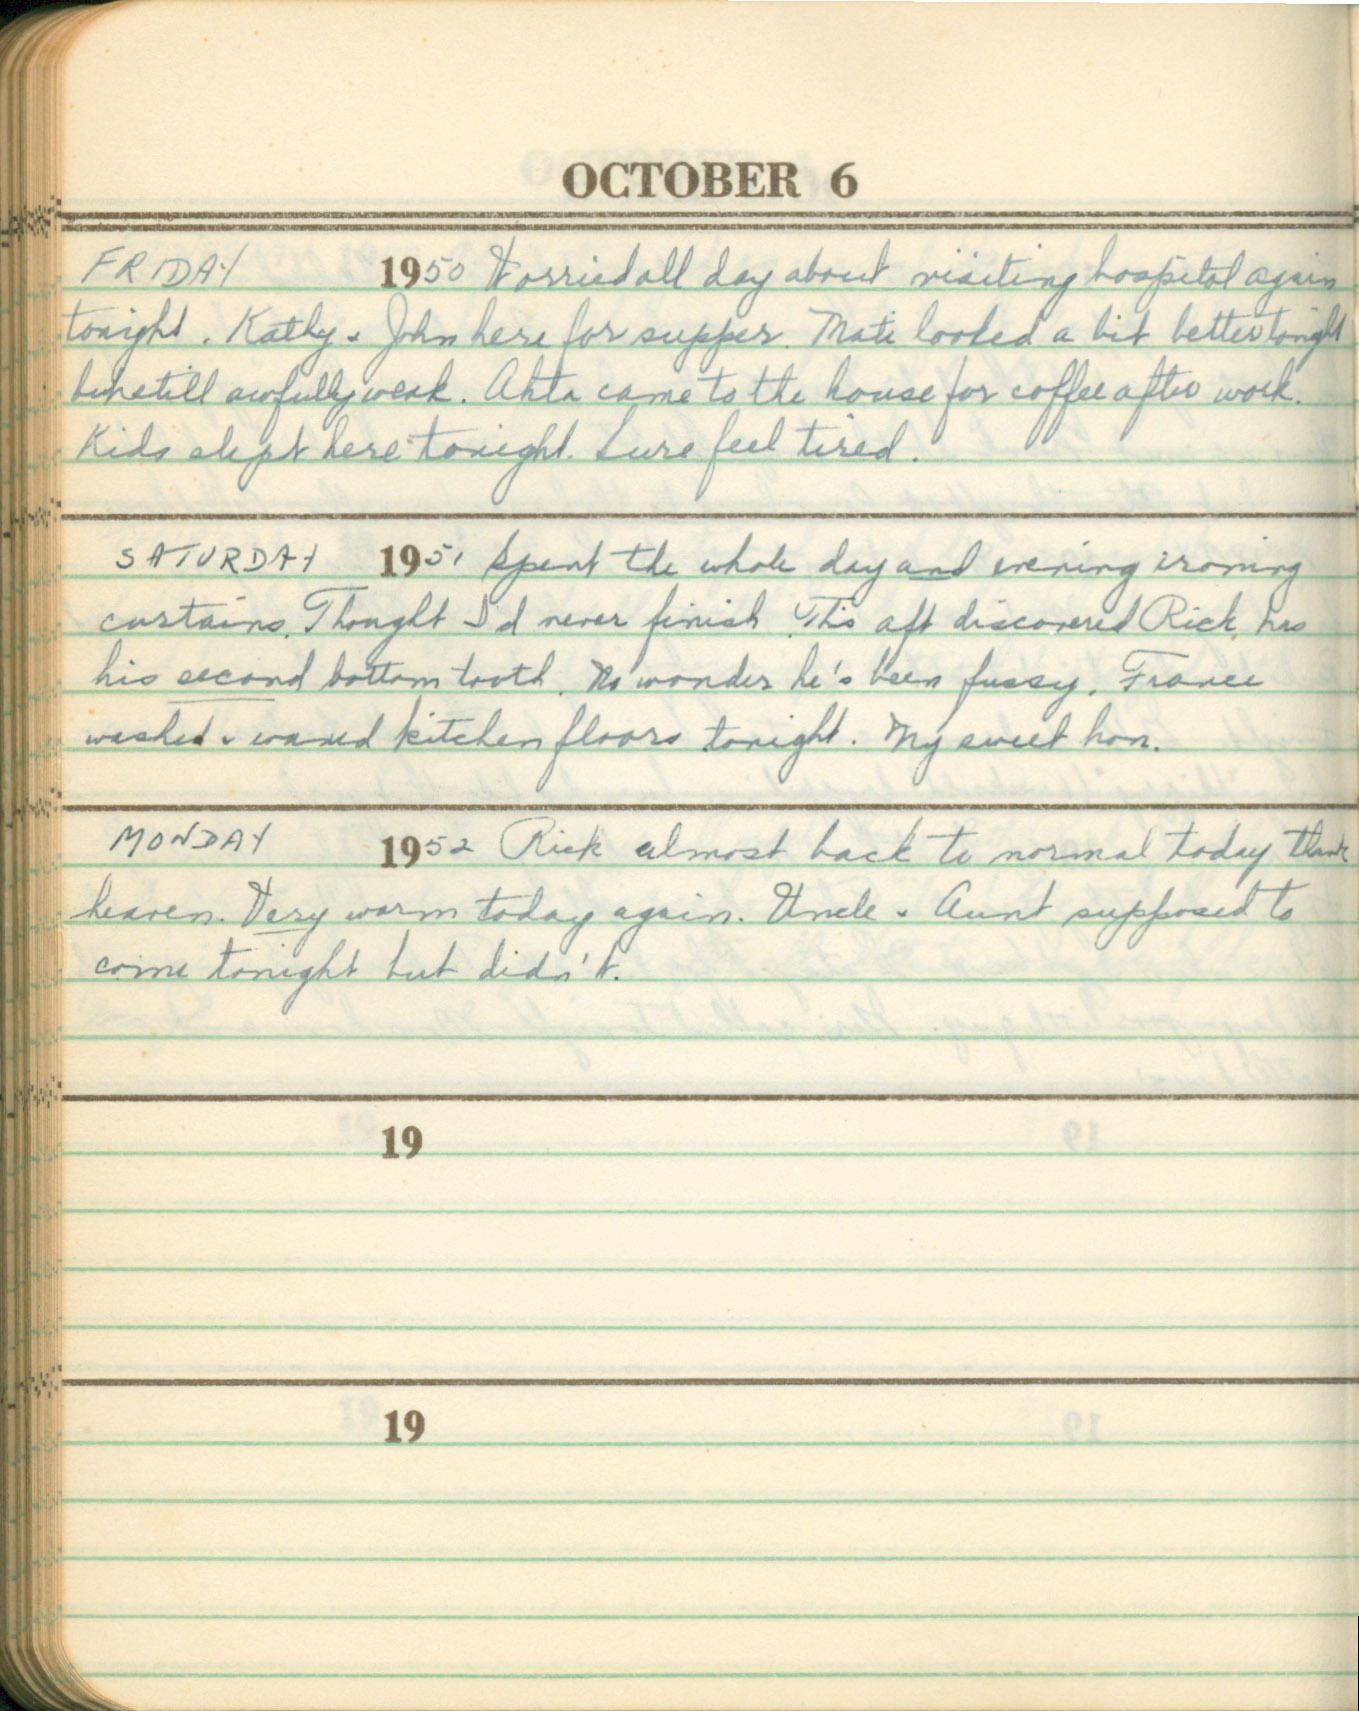 OCTOBER 6
FRIDAY 1950 Worried all day about visiting hospital again
tonight. Kathy & John here for supper. Mate looked a bit better tonight
but still awfully weak. came to the house for coffee after work.
Kids slept here tonight. Sure feel tired.
SATURDAY 1951 Spent the whole day and evening ironing
curtains. Thought I'd never finish. This aft discovered Rick has
his second bottom tooth. No wonder he's been fussy. France
washed & waxed kitchen floors tonight. My sweet hon.
MONDAY 1952 Rick almost back to normal today thank
heaven. Very warm today again. Uncle & Aunt supposed to
come tonight but didn't.
19
19